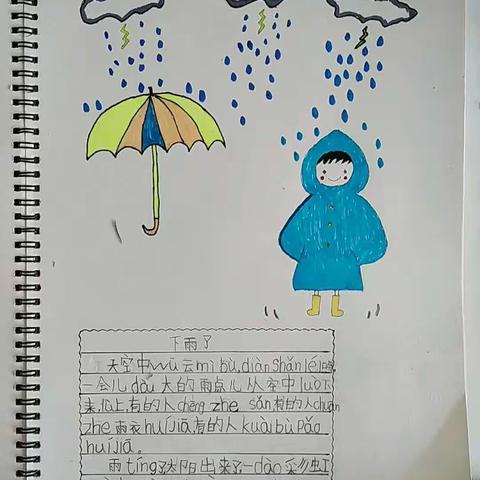 下雨了
天空中wū云mì bù,diàn shǎn léi
一会儿dòu大的雨点儿从空中luò下
来,上,有的人chēng zhe sǎn,有的人chuān
zhe雨衣huíjiā,有的人kuàibù pǎo
huíjiā。
雨tíng了,太阳出来了,一dào彩虹